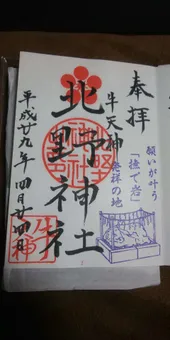 願いが叶う
「撫で岩」
発祥の地
奉拝
牛天神
北野神社
平成廿九年四月廿四日